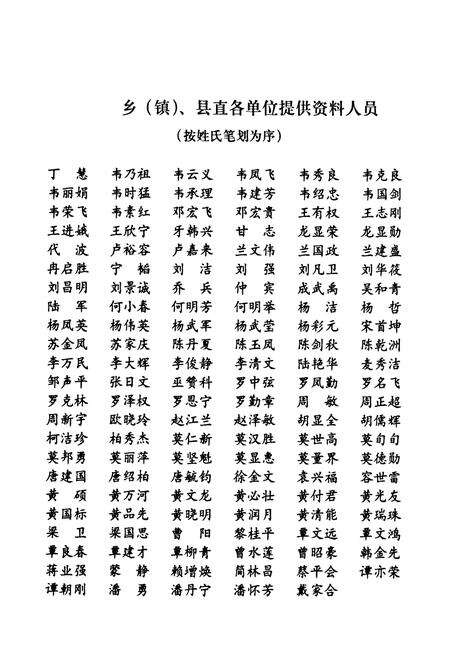 乡（镇）、县直各单位提供资料人员
（按姓氏笔划为序）
丁慧 韦乃祖 韦云义 韦凤飞 韦秀良 韦克良
韦丽娟 韦时猛 韦承理 韦建芳 韦绍忠 韦国剑
韦荣飞 韦素红 邓宏飞 邓宏贵 王有权 王志刚
王进娥 王欣宁 牙韩兴 甘志 龙显荣 龙显勋
代波 卢裕容 卢嘉来 兰文伟 兰国政 兰建盛
冉启胜 宁韬 刘洁 刘强 刘凡卫 刘华筱
刘昌明 刘景诚 乔兵 仲宾 成武禹 吴和青
陆军 何小春 何明芳 何明举 杨洁 杨哲
杨凤英 杨伟英 杨武军 杨武莹 杨彩元 宋首坤
苏金凤 苏家庆 陈丹夏 陈玉凤 陈剑秋 陈乾洲
李万民 李大辉 李俊静 李清文 陆艳华 麦秀洁
邹声平 张日文 巫赞科 罗中弦 罗凤勤 罗名飞
罗克林 罗泽权 罗恩宁 罗勤章 周敏 周正超
周新宇 欧晓玲 赵江兰 赵泽敏 胡显全 胡儒辉
柯洁珍 柏秀杰 莫仁新 莫汉胜 莫世高 莫旬旬
莫邦勇 莫丽萍 莫坚魁 莫显惠 莫董界 莫德勋
唐建国 唐绍柏 唐毓钧 徐金文 袁兴福 容世雷
黄硕 黄万河 黄文龙 黄必壮 黄付君 黄光友
黄国标 黄品先 黄晓明 黄润月 黄清能 黄瑞珠
梁卫 梁国思 曹阳 黎桂平 覃文远 覃文鸿
覃良春 覃建才 覃柳青 曾水莲 曾昭豪 韩金先
蒋业强 蒙静 赖增焕 简林昌 蔡平会 谭亦荣
谭朝刚 潘勇 潘丹宁 潘怀芳 戴家合